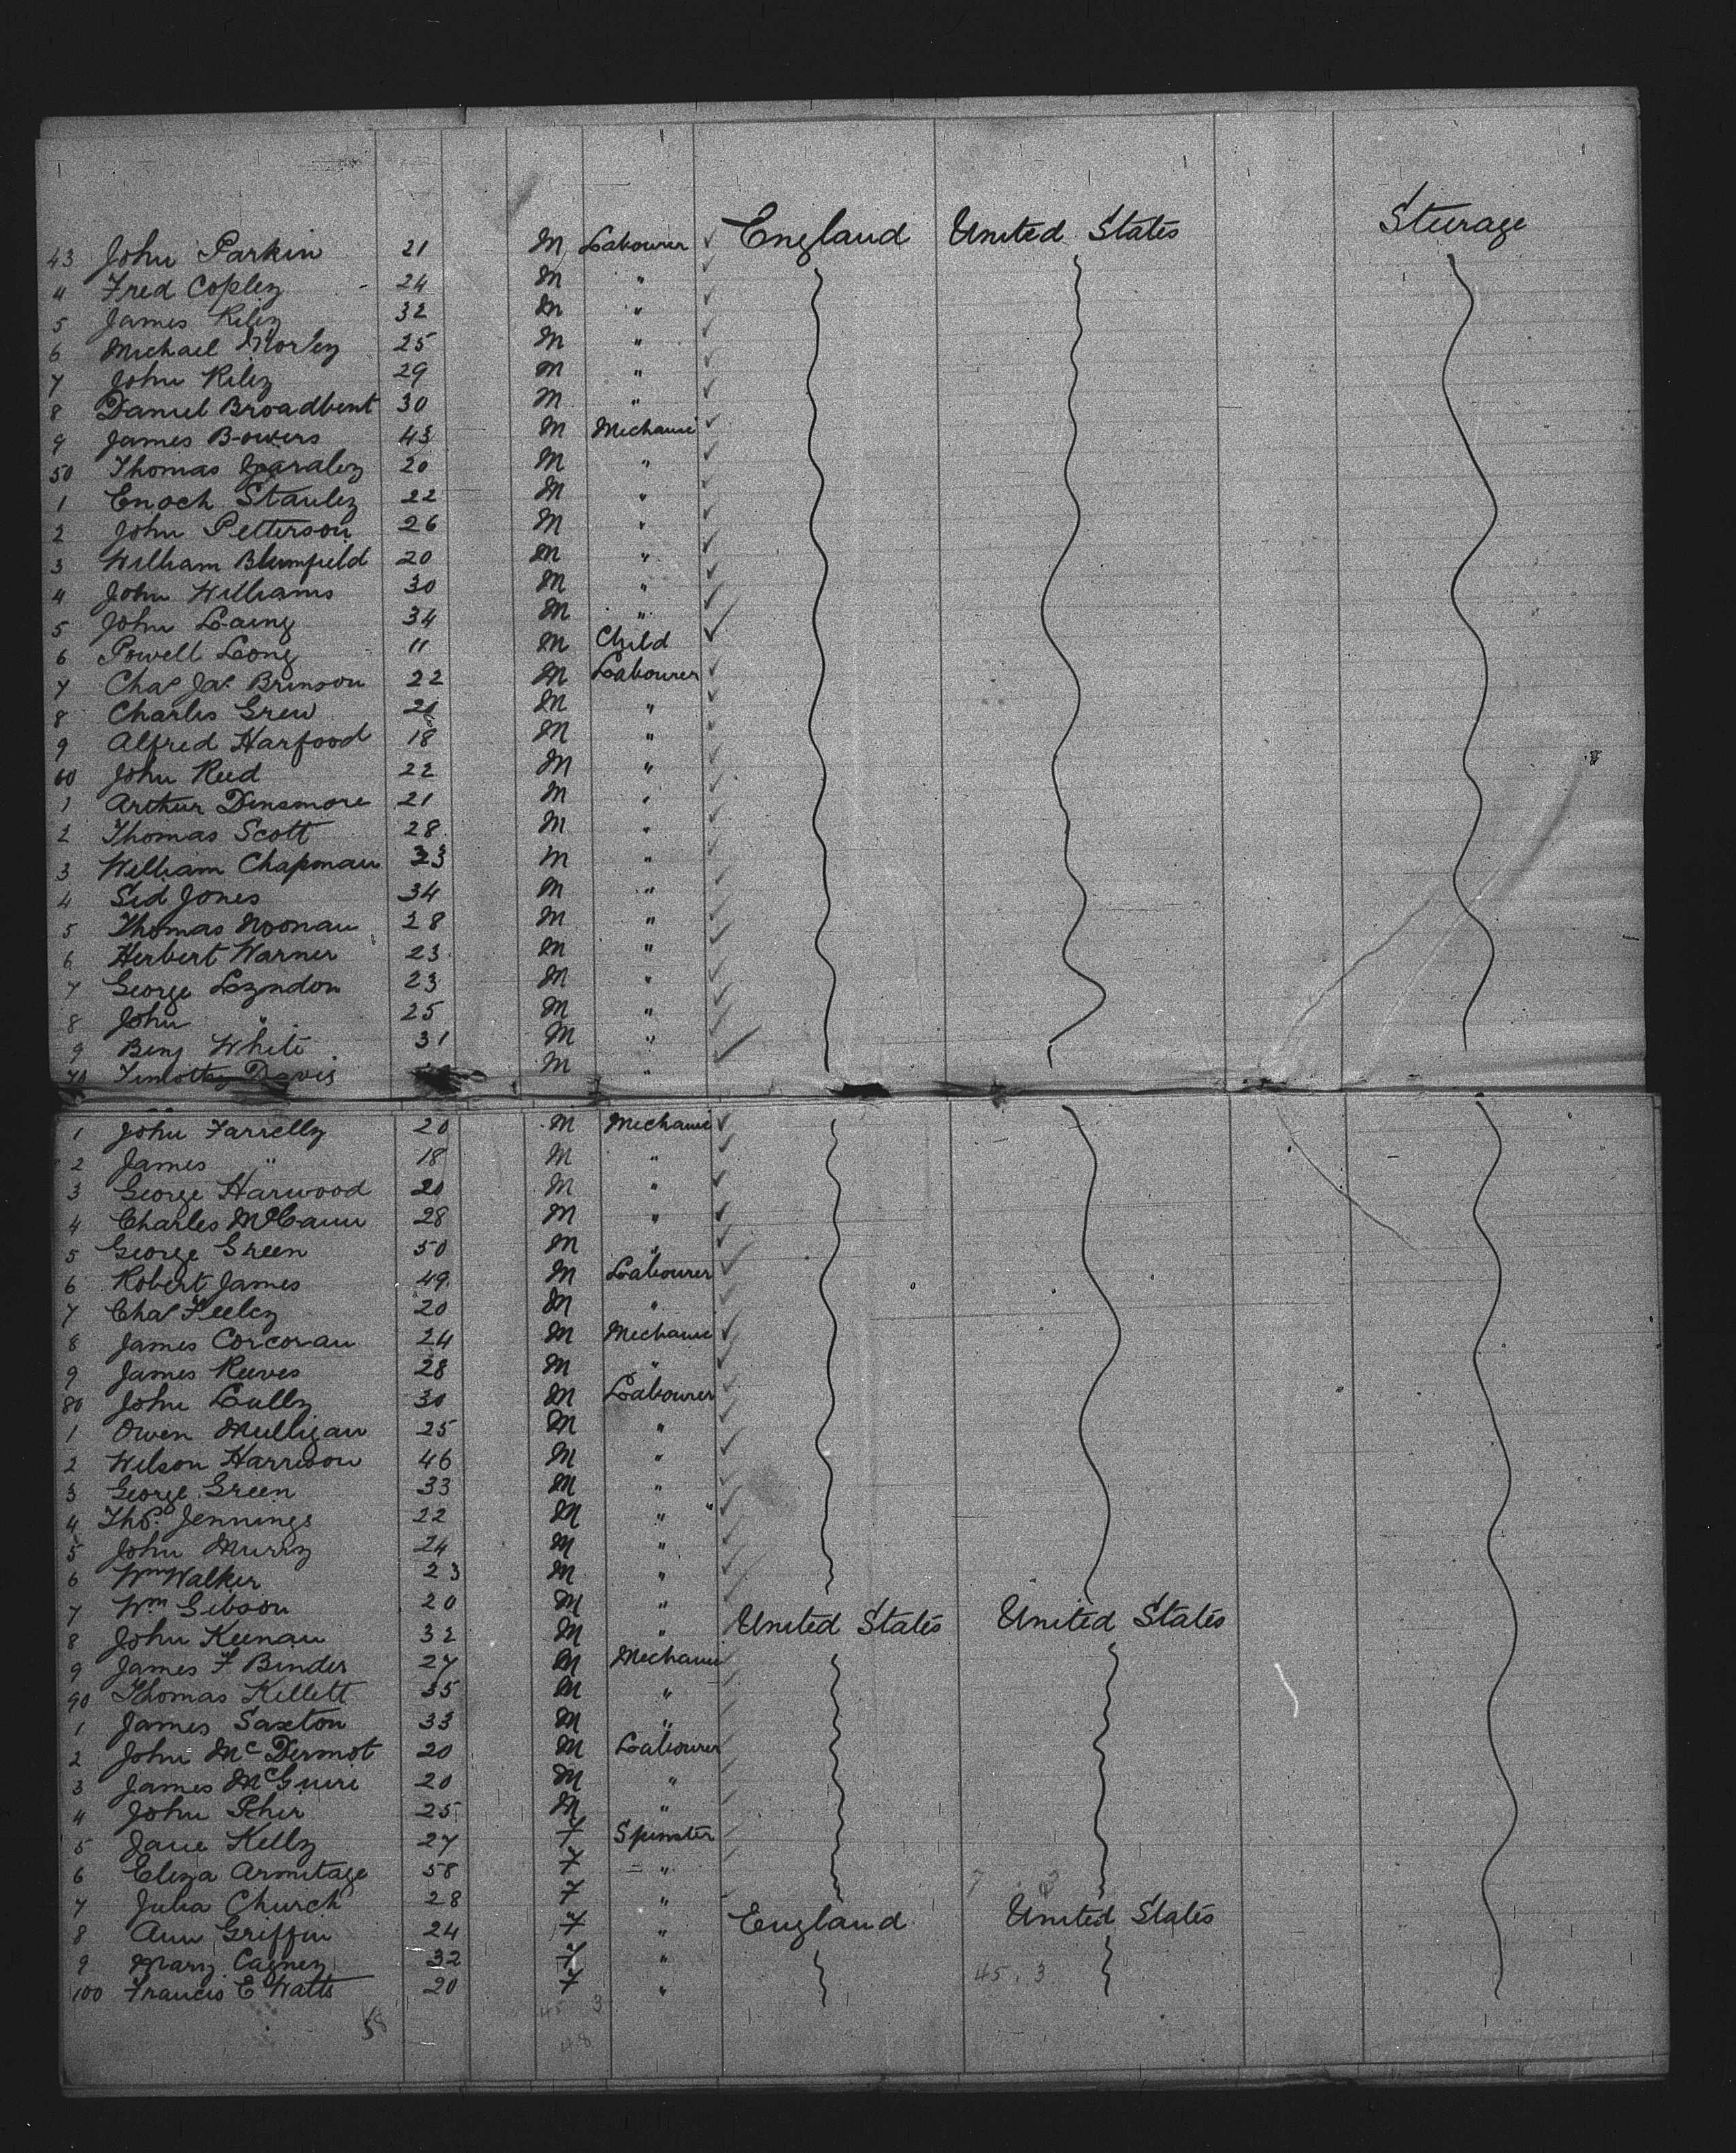 43 John Parkin 21 M Labourer England United States Steerage
4 Fred Copley 24 M "
5 James Riley 32 M "
6 Michael Morley 25 M "
7 John Riley 29 M "
8 Daniel Broadbent 30 M "
9 James Bowers 43 M Mechanic
50 Thomas 20 M "
1 Enoch Stanley 22 M "
2 John Petterson 26 M "
3 William Blumfield 20 M "
4 John Williams 30 M "
5 John Laing 34 M "
6 Powell Long 11 M Child
7 Chas Jas Brinson 22 M Labourer
8 Charles Grew M "
9 Alfred Harfood 18 M "
60 John Reed 22 M "
1 Arthur Dinsmore 21 M "
2 Thomas Scott 28 M "
3 William Chapman 23 M "
4 Sid Jones 34 M "
5 Thomas Noonan 28 M "
6 Herbert Warner 23 M "
7 George Lyndon 23 M "
8 John " 25 M "
9 Benj White 31 M "
70 Timothy Davis M "
1 John Farrelly 20 M Mechanic
2 James " 18 M "
3 George Harwood 20 M "
4 Charles McCann 28 M "
5 George Green 50 M "
6 Robert James 49 M Labourer
7 Chas Feeley 20 M "
8 James Corcoran 24 M Mechanic
9 James Reeves 28 M "
80 John Lully 30 M Labourer
1 Owen Mulligan 25 M "
2 Wilson Harrison 46 M "
3 George Green 33 M "
4 Thos. Jennings 22 M "
5 John Murry 24 M "
6 Wm Walker 23 M "
7 Wm Gibson 20 M "
8 John Keenan 32 M " United States United States
9 James F Binder 27 M Mechanic
90 Thomas Kellett 35 M "
1 James Saxton 33 M "
2 John McDermot 20 M Labourer
3 James McGuire 20 M "
4 John 25 M "
5 Jane Kelly 27 F Spinster
6 Eliza Armitage 58 F "
7 Julia Church 28 F "
8 Ann Griffin 24 F " England United States
9 Mary Cagney 32 F "
100 Francis E Watts 20 F "
45 3
45 3
48